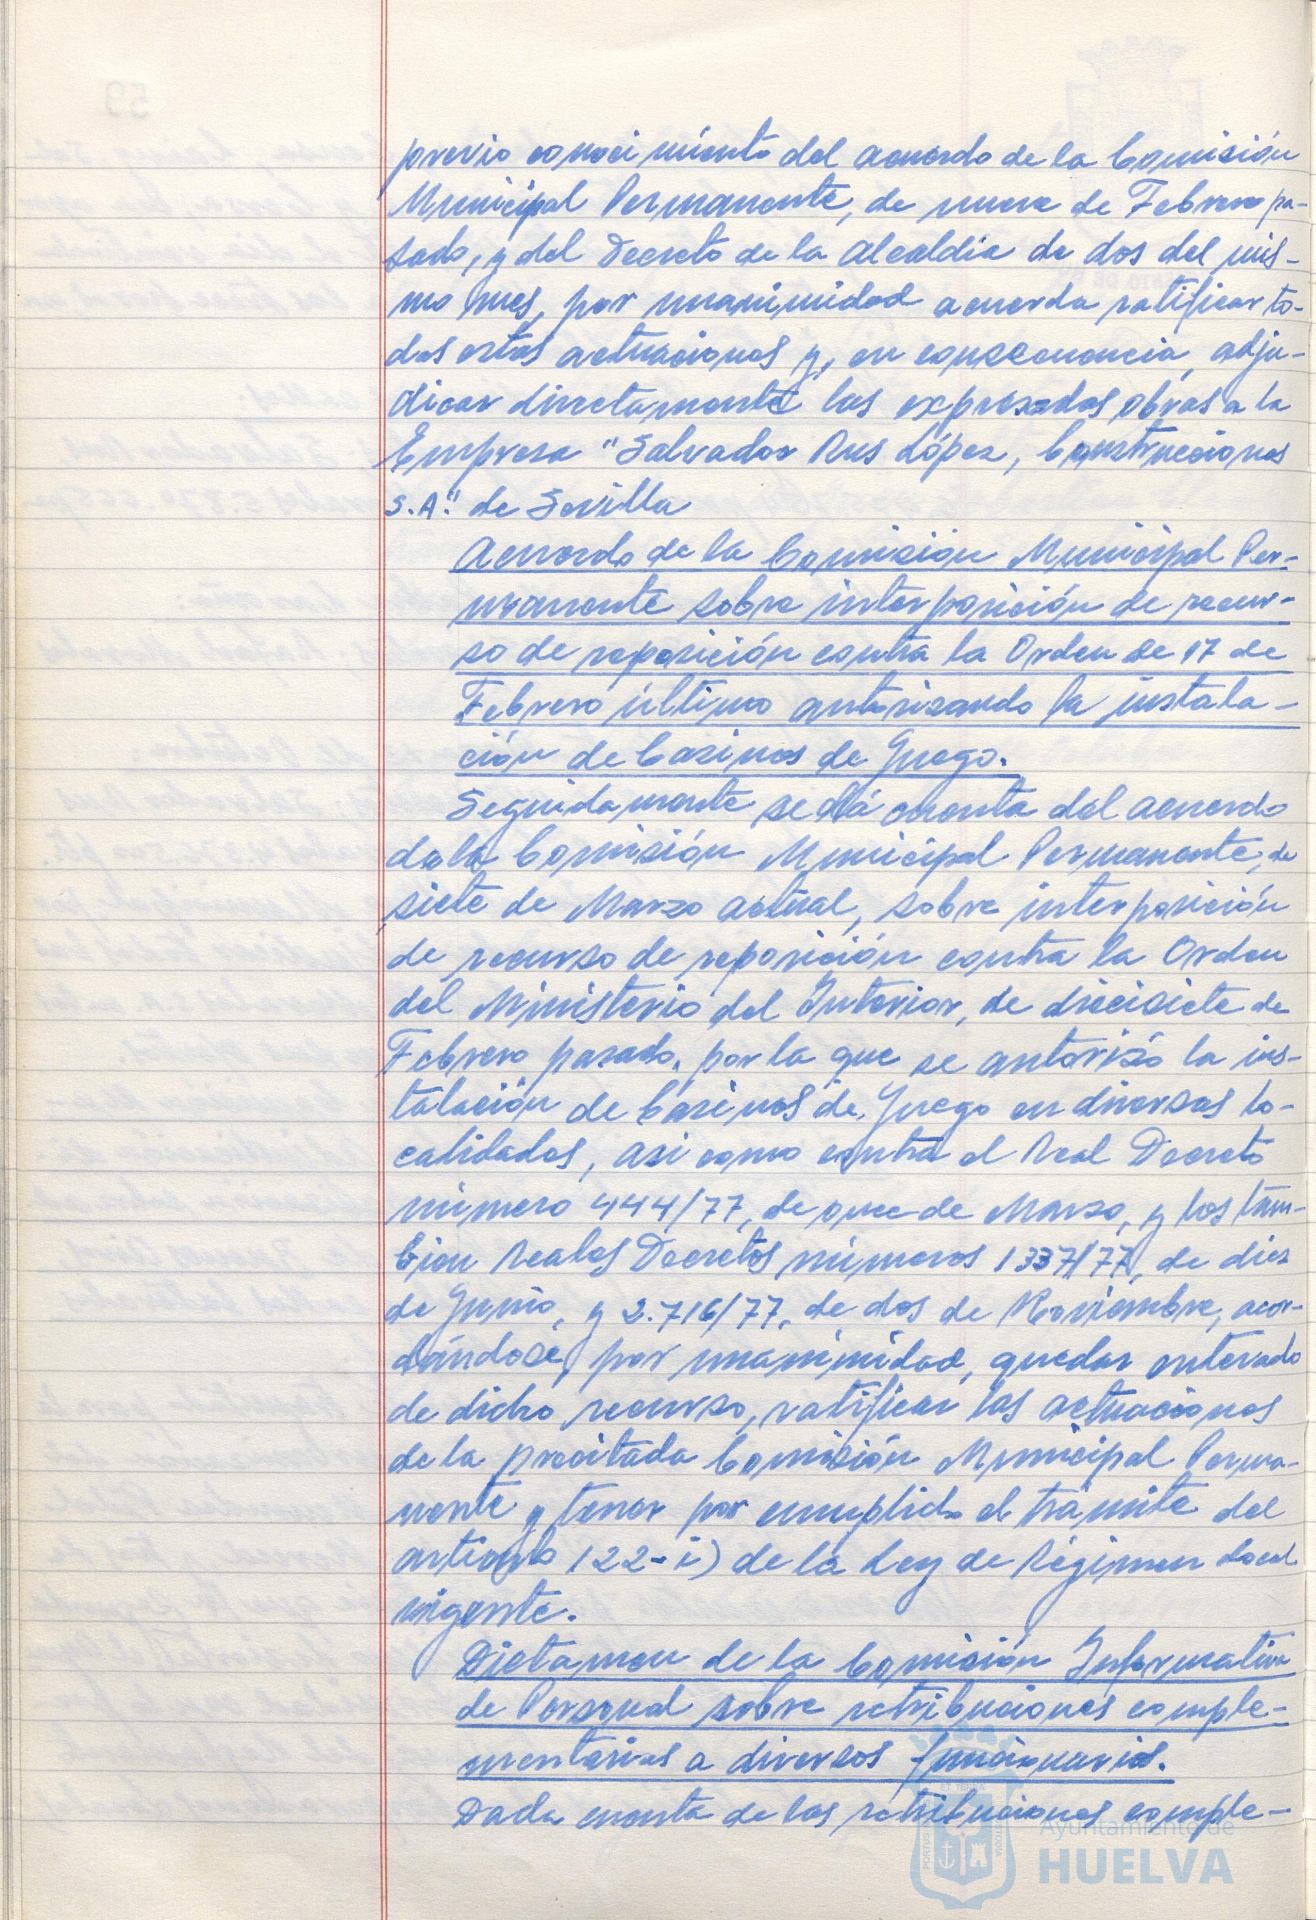 previo conocimiento del acuerdo de la Comisión
Municipal Permanente, de nueve de Febrero pa-
sado, y del Decreto de la Alcaldia de dos del mis-
mo mes, por unanimidad acuerda ratificar to-
das estas actuaciones y, en consecuencia, adju-
dicar directamente las expresadas obras a la
Empresa "Salvador Rus López, Construcciones
S.A." de Sevilla
Acuerdo de la Comisión Municipal Per-
manente sobre interposición de recur-
so de reposición contra la Orden de 17 de
Febrero último autorizando la instala-
ción de Casinos de Juego.
Seguidamente se dá cuenta del acuerdo
de la Comisión Municipal Permanente, de
siete de Marzo actual, sobre interposición
de recurso de reposición contra la Orden
del Ministerio del Interior, de diecisiete de
Febrero pasado, por la que se autorizó la ins-
talación de Casinos de Juego en diversas lo-
calidades, asi como contra el Real Decreto
número 444/77, de once de Marzo, y los tam-
bien Reales Decretos números 1337/77, de diez
de Junio, y 2.716/77, de dos de Noviembre, acor-
dándose, por unanimidad, quedar enterado
de dicho recurso, ratificar las actuaciones
de la precitada Comisión Municipal Perma-
nente y tener por cumplido el trámite del
artículo 122-i) de la Ley de Régimen Local
vigente.
Dictamen de la Comisión Informativa
de Personal sobre retribuciones comple-
mentarias a diversos funcionarios.
Dada cuenta de las retribuciones comple-
Ayuntamiento de
HUELVA